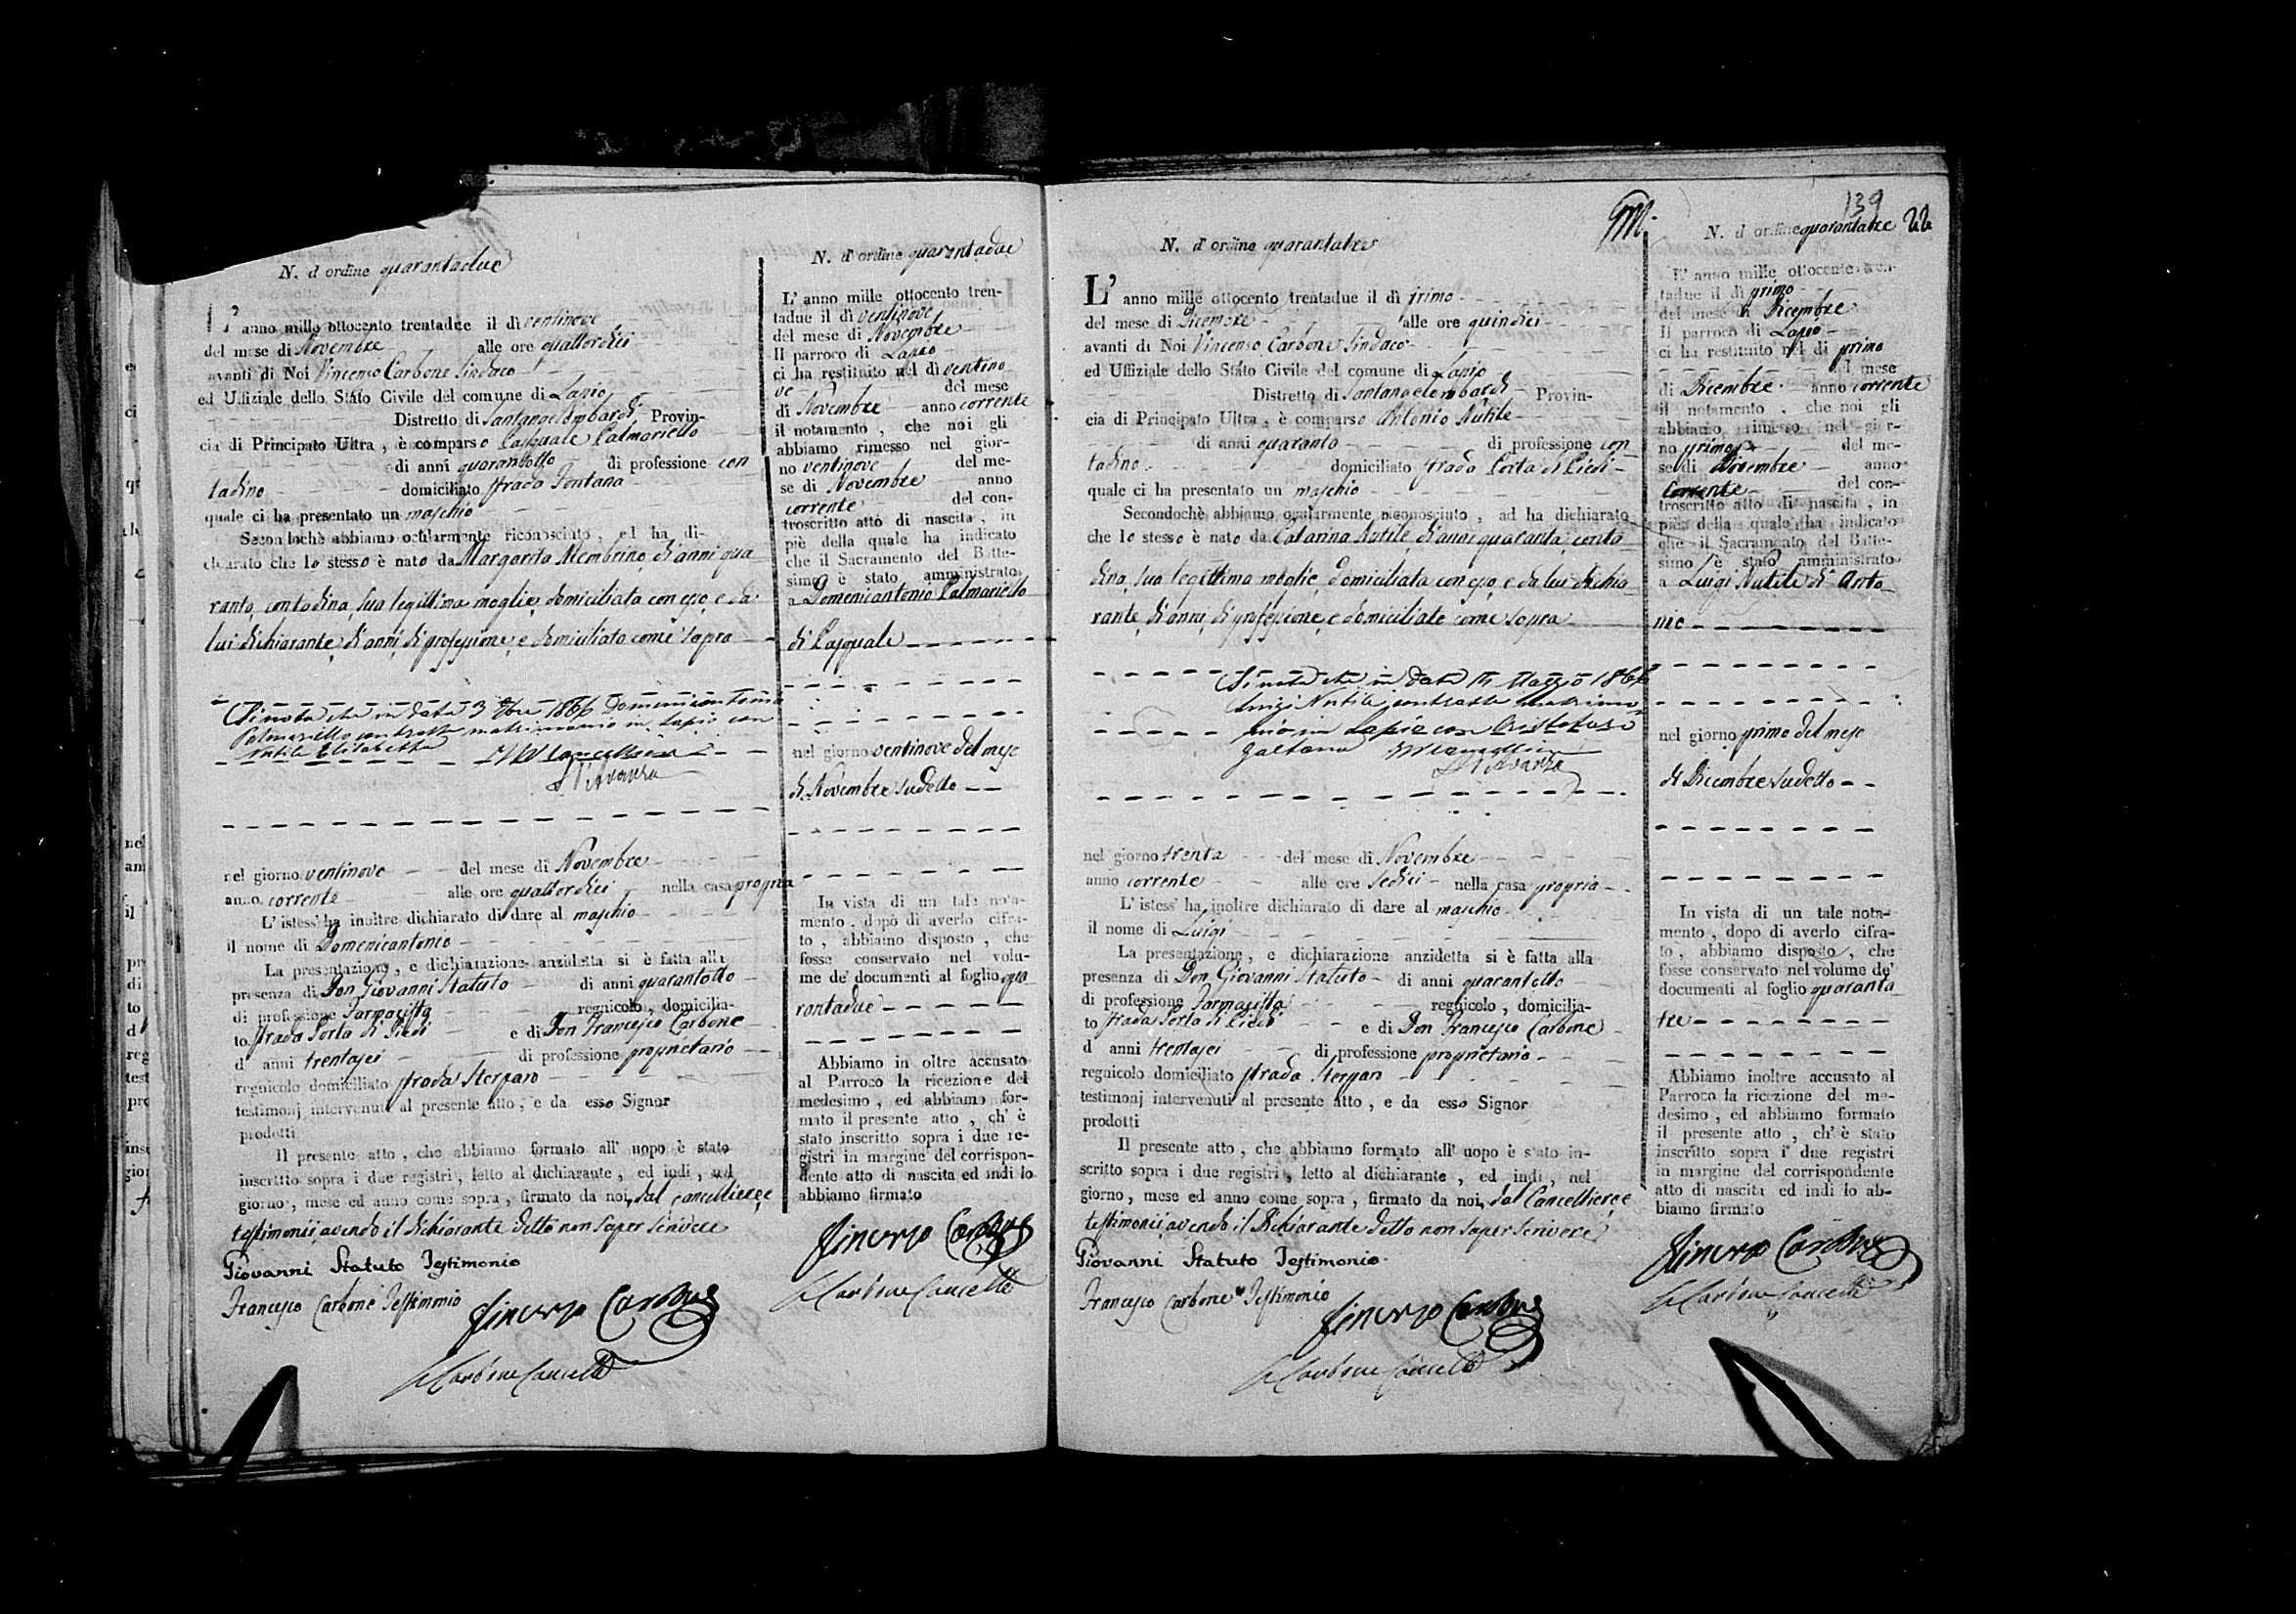 N. d'ordine quarantadue
L'anno mille ottocento trentadue il dì ventinove
del mese di Novembre alle ore quattordici
avanti di Noi Vincenzo Carbone Sindaco
ed Uffiziale dello Stato Civile del comune di Lapio
Distretto di Santangelombardi Provin-
cia di Principato Ultra, è comparso Pasquale Palmariello
di anni quarantotto di professione con
tadino domiciliato strada Fontana
quale ci ha presentato un maschio
Secondochè abbiamo ocularmente riconosciuto, ed ha di-
chiarato che lo stesso è nato da Margarita Membrino, di anni qua
ranta, contadina, sua legittima moglie, domiciliata con esso, e da
lui dichiarante, di anni, di professione, e domiciliato come sopra
Si nota che in data 3 1866 Domenicantonio
Palmariello contratto matrimonio in Lapio con
Nutile Elisabetta
nel giorno ventinove del mese di Novembre
anno corrente alle ore quattordici nella casa propria
L'istess' ha inoltre dichiarato di dare al maschio
il nome di Domenicantonio
La presentazione, e dichiarazione anzidetta si è fatta alla
presenza di Don Giovanni Statuto di anni quarantotto
di professione Farmacista regnicolo, domicilia-
to strada Porta di Piedi e di Don Francesco Carbone
d anni trentasei di professione proprietario
regnicolo domiciliato strada Sterparo
testimonj intervenuti al presente atto, e da esso Signor
prodotti
Il presente atto, che abbiamo formato all' uopo è stato
inscritto sopra i due registri, letto al dichiarante, ed indi, nel
giorno, mese ed anno come sopra, firmato da noi, dal cancelliere, e
testimonii, avendo il dichiarante detto non saper scrivere
Giovanni Statuto Testimonio
Francesco Carbone Testimonio
Vincenzo Carbone
Carbone Cancell.
N. d'ordine quarantadue
L'anno mille ottocento tren-
tadue il dì ventinove
del mese di Novembre
Il parroco di Lapio
ci ha restituito nel dì ventino
ve del mese
di Novembre anno corrente
il notamento, che noi gli
abbiamo rimesso nel gior-
no ventinove del me-
se di Novembre anno
corrente del con-
troscritto atto di nascita, in
piè della quale ha indicato
che il Sacramento del Batte-
simo è stato amministrato
a Domenicantonio Palmariello
di Pasquale
nel giorno ventinove del mese
di Novembre sudetto
In vista di un tale nota-
mento, dopo di averlo cifra-
to, abbiamo disposto, che
fosse conservato nel volu-
me de' documenti al foglio qua
rantadue
Abbiamo in oltre accusato
al Parroco la ricezione del
medesimo, ed abbiamo for-
mato il presente atto, ch' è
stato inscritto sopra i due re-
gistri in margine del corrispon-
dente atto di nascita ed indi lo
abbiamo firmato
Vincenzo Carbone
Carbone Cancell.
N. d'ordine quarantatre
L'anno mille ottocento trentadue il dì primo
del mese di Dicembre alle ore quindici
avanti di Noi Vincenzo Carbone Sindaco
ed Uffiziale dello Stato Civile del comune di Lapio
Distretto di Santangelombardi Provin-
cia di Principato Ultra, è comparso Antonio Nutile
di anni quaranta di professione con
tadino domiciliato strada Porta di Piedi
quale ci ha presentato un maschio
Secondochè abbiamo ocularmente riconosciuto, ad ha dichiarato
che lo stesso è nato da Catarina Nutile, di anni quaranta, conta
dina, sua legittima moglie, domiciliata con esso, e da lui dichia
rante, di anni, di professione, e domiciliato come sopra
Si nota che in data Marzo
Luigi Nutile contratto matrimo
nio in Lapio con Cristofaro
Gaetana
nel giorno trenta del mese di Novembre
anno corrente alle ore sedici nella casa propria
L'istess' ha inoltre dichiarato di dare al maschio
il nome di Luigi
La presentazione, e dichiarazione anzidetta si è fatta alla
presenza di Don Giovanni Statuto di anni quarantotto
di professione Farmacista regnicolo, domicilia-
to strada Porta di Piedi e di Don Francesco Carbone
d anni trentasei di professione proprietario
regnicolo domiciliato strada Sterparo
testimonj intervenuti al presente atto, e da esso Signor
prodotti
Il presente atto, che abbiamo formato all' uopo è stato in-
scritto sopra i due registri, letto al dichiarante, ed indi, nel
giorno, mese ed anno come sopra, firmato da noi, dal Cancelliere, e
testimonii, avendo il Dichiarante detto non saper scrivere
Giovanni Statuto Testimonio
Francesco Carbone Testimonio
Vincenzo Carbone
Carbone Cancell.
139
N. d'ordine quarantatre
L'anno mille ottocento tren-
tadue il dì primo
del mese di Dicembre
Il parroco di Lapio
ci ha restituito nel dì primo
del mese
di Dicembre anno corrente
il notamento, che noi gli
abbiamo rimesso nel gior-
no primo del me-
se di Dicembre anno
corrente del con-
troscritto atto di nascita, in
piè della quale ha indicato
che il Sacramento del Batte-
simo è stato amministrato
a Luigi Nutile di Anto
nio
nel giorno primo del mese
di Dicembre sudetto
In vista di un tale nota-
mento, dopo di averlo cifra-
to, abbiamo disposto, che
fosse conservato nel volume de'
documenti al foglio quaranta
tre
Abbiamo inoltre accusato al
Parroco la ricezione del me-
desimo, ed abbiamo formato
il presente atto, ch' è stato
inscritto sopra i due registri
in margine del corrispondente
atto di nascita ed indi lo ab-
biamo firmato
Vincenzo Carbone
Carbone Cancell.